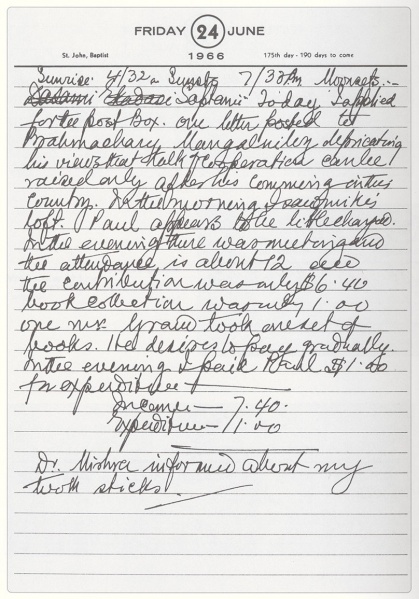 FRIDAY 24 JUNE
St. John, Baptist 1966 175th day - 190 days to come
Sunrise. 4/32 a Sunsets 7/30 Pm Moonsets.-
Saptami Today I applied
for the Post Box. one letter posted to
Brahmachary Mangalniloy
his views that talk of cooperation can be
raised only after his comming in this
country. In the morning I saw in his
loft. Paul appears to be little changed.
In the evening there was meeting and
the attendance is about 12 and
the contribution was only $6.40
book collection was only 1.00
one mr. took one set of
books. He desires to pay gradually.
In the evening I paid Paul $1.00
for expenditure
Income — 7.40.
Expenditure — 1.00
Dr. Mishra informed about my
tooth sticks.